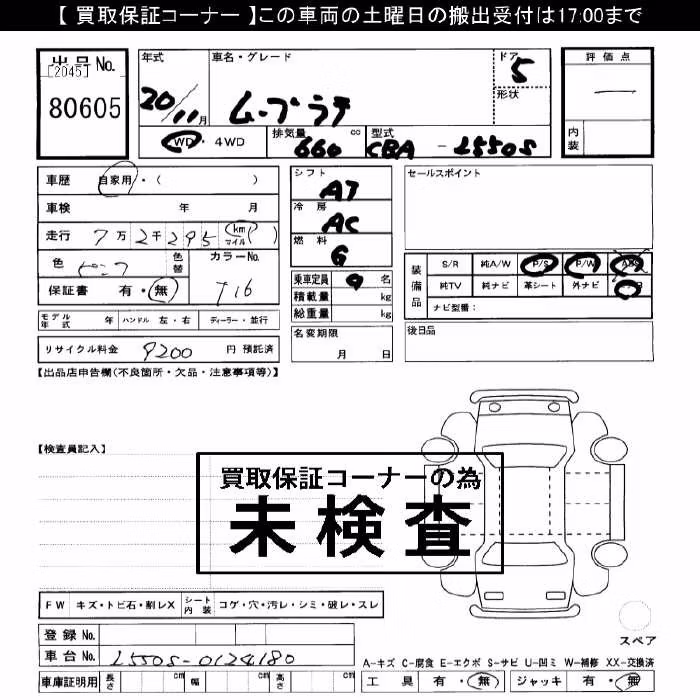 【 買取保証コーナー 】この車両の土曜日の搬出受付は17:00まで
出品No.
[2045]
80605
年式
20/11月
車名・グレード
ムーブラテ
ドア
5
形状
評価点
―
内装
2WD・4WD
排気量
660 cc
型式
CBA - L550S
車歴 自家用・( )
車検 年 月
走行 7万2千295 (km マイル)
色
ピンク
色替
カラーNo.
T16
保証書 有・無
モデル年式 年 ハンドル 左・右 ディーラー・並行
リサイクル料金 9200 円 預託済
シフト
AT
冷房
AC
燃料
G
乗車定員 名
積載量 kg
総重量 kg
名変期限
月 日
セールスポイント
装備品
S/R 純A/W P/S P/W ABS
純TV 純ナビ 革シート 外ナビ
ナビ型番:
後日品
【出品店申告欄(不良箇所・欠品・注意事項等)】
【検査員記入】
買取保証コーナーの為
未検査
FW キズ・トビ石・割レX シート内装 コゲ・穴・汚レ・シミ・破レ・スレ
登録No.
車台No. L550S-0124180
車庫証明用 長さ cm 幅 cm 高さ cm
スペア
A-キズ C-腐食 E-エクボ S-サビ U-凹ミ W-補修 XX-交換済
工具 有・無 ジャッキ 有・無